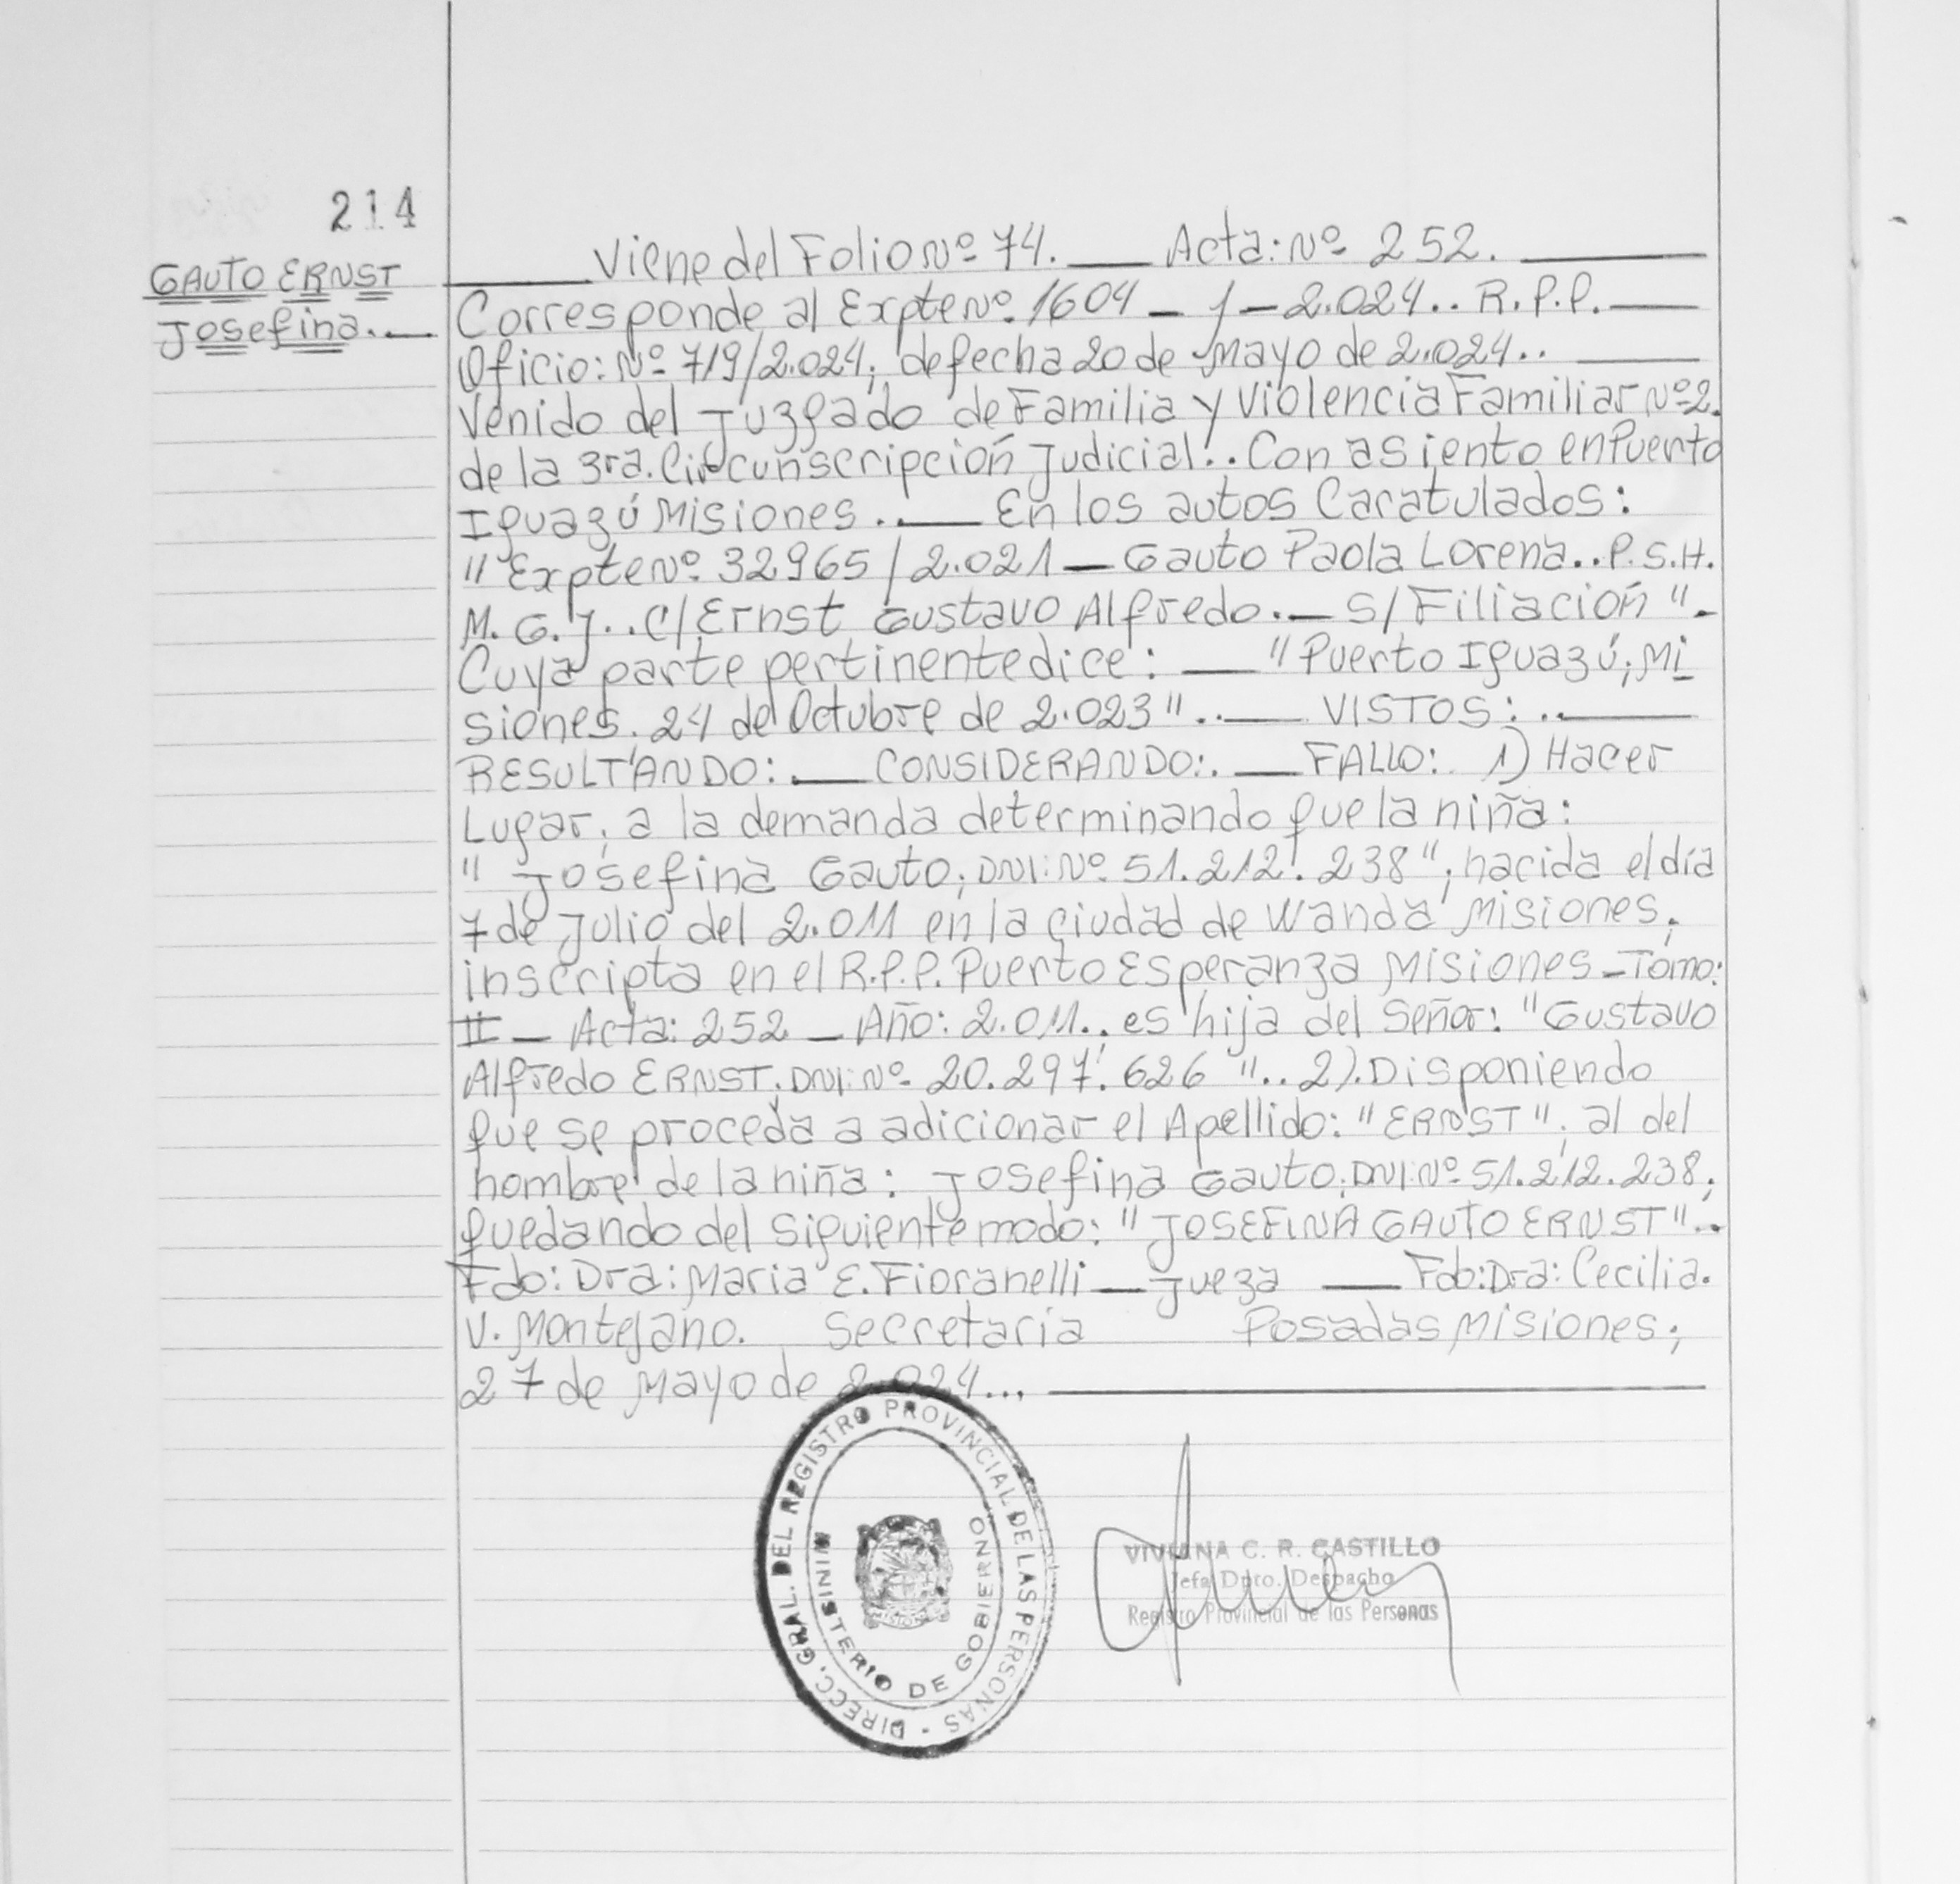 214
GAUTO ERNST
Josefina.
Viene del Folio Nº 74. Acta: Nº 252.
Corresponde al Expte Nº 1604 - J - 2.024.. R.P.P.
Oficio: Nº 719/2.024; de fecha 20 de Mayo de 2.024..
Venido del Juzgado de Familia y Violencia Familiar Nº 2.
de la 3ra. Circunscripción Judicial.. Con asiento en Puerto
Iguazú Misiones. En los autos Caratulados:
"Expte Nº 32965/2.021 - Gauto Paola Lorena.. P.S.H.
M.G.J.. C/ Ernst Gustavo Alfredo. - S/ Filiación".
Cuya parte pertinente dice: "Puerto Iguazú; Mi
siones. 24 de Octubre de 2.023".. VISTOS: ..
RESULTANDO: . CONSIDERANDO: . FALLO: 1) Hacer
Lugar, a la demanda determinando que la niña:
"Josefina Gauto; DNI: Nº 51.212.238"; nacida el día
7 de Julio del 2.011 en la ciudad de Wanda Misiones;
inscripta en el R.P.P. Puerto Esperanza Misiones - Tomo:
II - Acta: 252 - Año: 2.011.. es hija del Señor: "Gustavo
Alfredo ERNST; DNI: Nº 20.297.626".. 2). Disponiendo
que se proceda a adicionar el Apellido: "ERNST"; al del
nombre de la niña: Josefina Gauto; DNI: Nº 51.212.238;
quedando del siguiente modo: "JOSEFINA GAUTO ERNST"..
Fdo: Dra: Maria E. Fioranelli - Jueza Fdo: Dra: Cecilia.
V. Montejano. Secretaria Posadas Misiones;
27 de Mayo de 2.024...
DIRECC. GRAL. DEL REGISTRO PROVINCIAL DE LAS PERSONAS -
MINISTERIO DE GOBIERNO
MISIONES
VIVIANA C. R. CASTILLO
Jefa Dpto. Despacho
Registro Provincial de las Personas